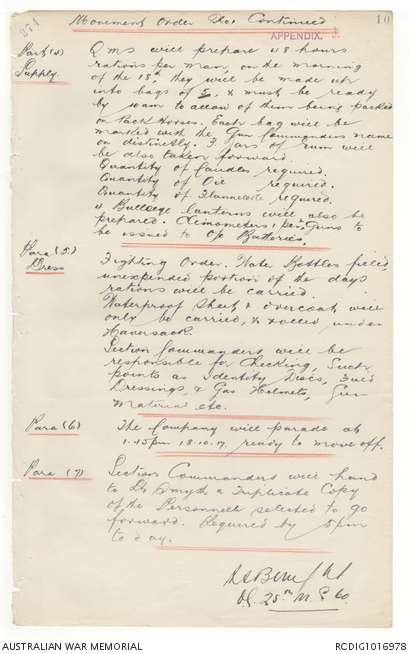 271
Movement Order No. Continued
10
APPENDIX.
Para (4)
Supply.
Q.M.S will prepare 48 hours
rations per man, on the morning
of the 18th they will be made up
into bags of 5, & must be ready
by 10am to allow of them being packed
on Pack Horses. Each bag will be
marked with the Gun Commanders name
on distinctly. 3 Jars of Rum will
be also taken forward.
Quantity of Candles required.
Quantity of Oil required.
Quantity of Flannelette required.
4 Bullseye Lanterns will also be
prepared. Clinometers 1 per 2 Guns to
be issued to O/c Batteries.
Para (5)
Dress
Fighting Order. Water Bottles filled,
unexpended portion of the days
rations will be carried.
Waterproof Sheet & overcoat will
only be carried, & rolled under
Haversack.
Section Commanders will be
responsible for Checking, Such
points as Identity Discs,
Dressings, & Gas Helmets, Gun
Material etc.
Para (6)
The Company will parade at
1.45pm 18.10.17. ready to move off.
Para (7)
Section Commanders will hand
to Lt Smyth a Triplicate Copy
of the Personnel selected to go
forward. Required by 5pm
to day.
25th M.G Co.
AUSTRALIAN WAR MEMORIAL
RCDIG1016978